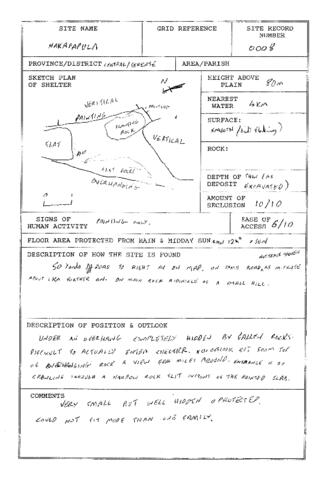 SITE NAME
GRID REFERENCE
SITE RECORD
NUMBER
NAKAPAPULA
0008
PROVINCE/DISTRICT CENTRAL/SERENJE
AREA/PARISH
SKETCH PLAN
OF SHELTER
N
VERTICAL
PAINTING
ROCK
FLAT
VERTICAL
OVERHANGING
HEIGHT ABOVE
PLAIN 80m
NEAREST
WATER 4KM
SURFACE:
SMOOTH/
ROCK:
DEPTH OF
DEPOSIT EXCAVATED)
AMOUNT OF
SECLUSION 10/10
SIGNS OF
HUMAN ACTIVITY PAINTING ONLY.
EASE OF
ACCESS 6/10
FLOOR AREA PROTECTED FROM RAIN & MIDDAY SUN
DESCRIPTION OF HOW THE SITE IS FOUND
50 YARDS TO RIGHT AS ON MAP. ON THIS ROAD,
ABOUT 1KM FURTHER ON. ON MAIN ROCK A SMALL HILL.
DESCRIPTION OF POSITION & OUTLOOK
UNDER AN OVERHANG COMPLETELY HIDDEN BY FALLEN ROCKS.
DIFFICULT TO ACTUALLY ENTER SHELTER. FROM TOP
OF OVERHANGING ROCK A VIEW FOR MILES AROUND. ENTRANCE IS BY
CRAWLING THROUGH A NARROW ROCK SLIT OF THE PAINTED SLAB.
COMMENTS
VERY SMALL BUT WELL HIDDEN & PROTECTED.
COULD NOT FIT MORE THAN ONE FAMILY.